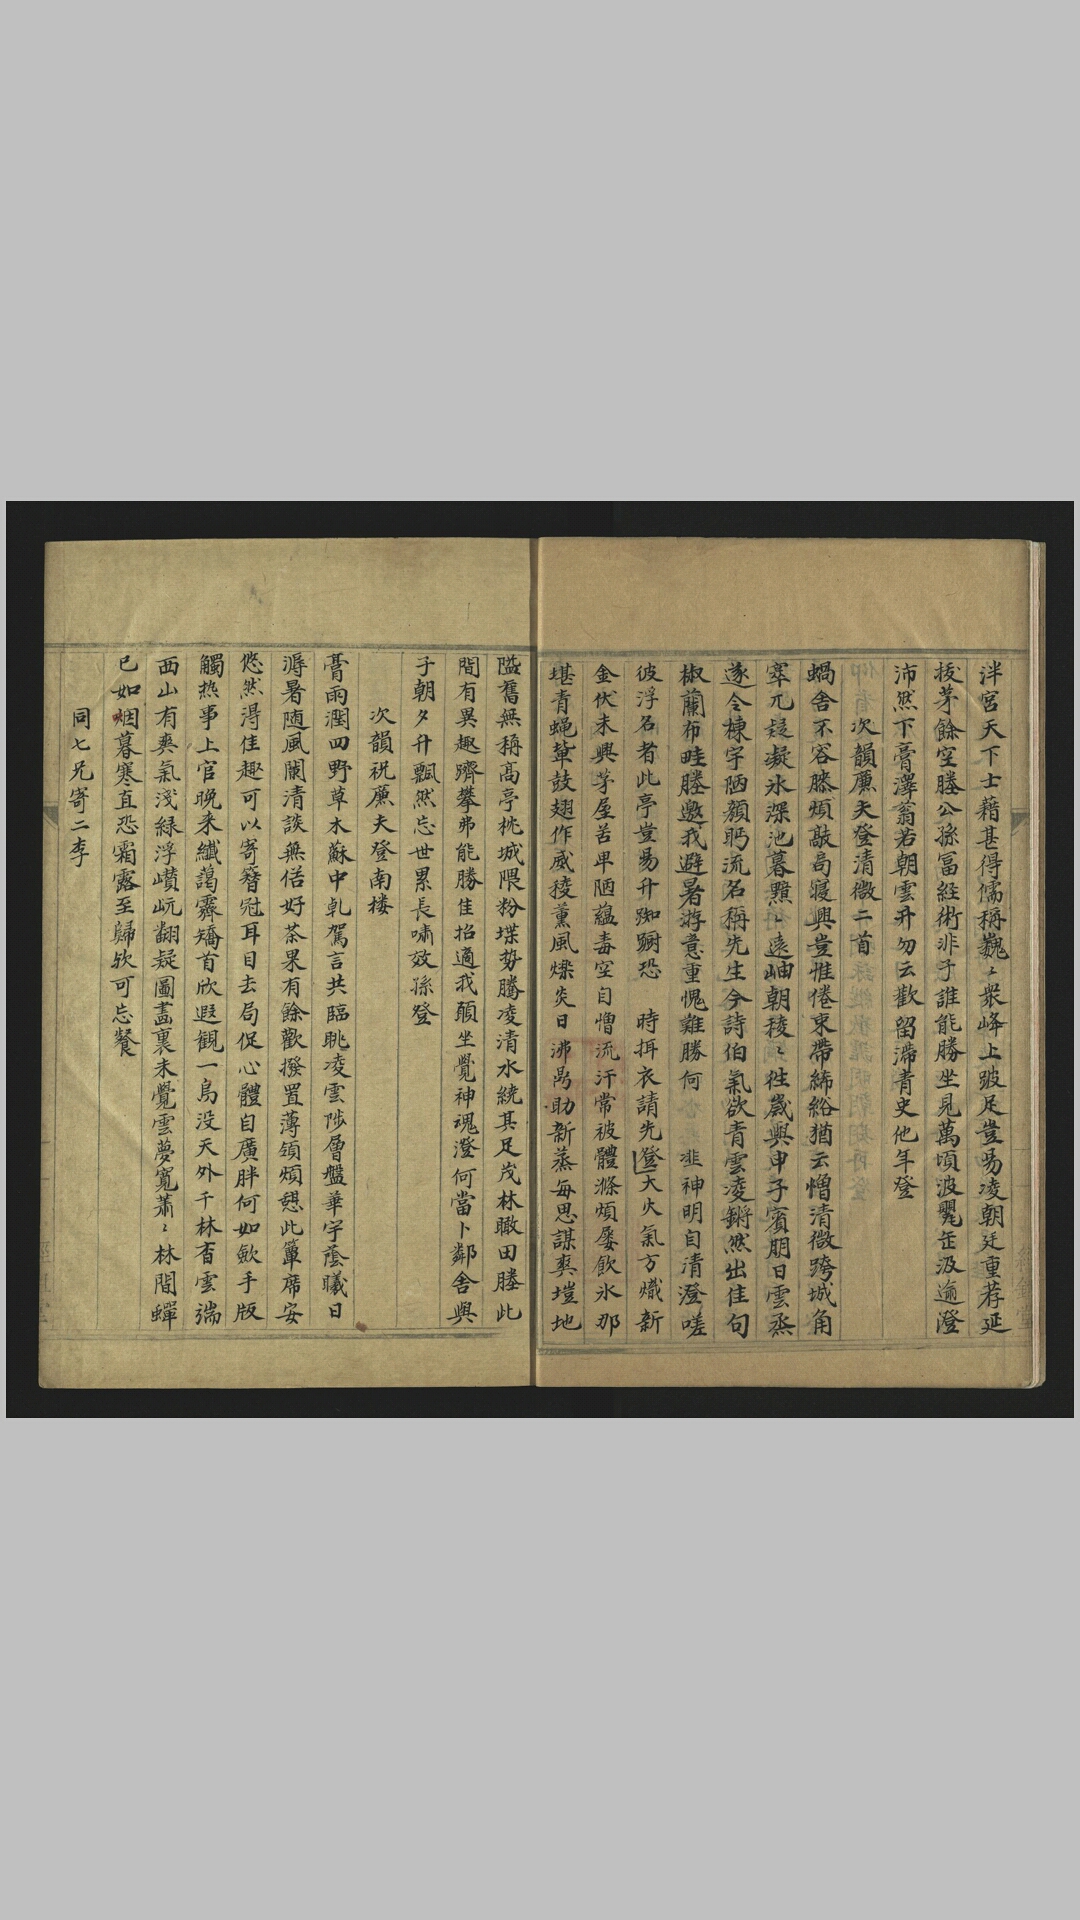 泮宮天下士藉甚得儒稱巍〻衆峰上跛足豈易凌朝廷重荐延
拔茅餘空塍公孫冨經術非子誰能勝坐見萬頃波罷缶汲逾澄
沛然下膏澤翁若朝雲升勿云歡留滯青史他年登
次韻廉夫登清微二首
蝸舍不容膝煩敲髙寢興豈惟倦束帶絺綌猶云憎清微跨城角
窣兀疑凝氷深池暮黯〻遠岫朝稜〻徃歲與申子賓朋日雲烝
遂令棟宇陋顏眄流名稱先生今詩伯氣欲青雲凌鏘然出佳句
椒蘭布畦塍邀我避暑游意重愧難勝何 韭神明自清澄嗟
彼浮名者此亭豈昜升踟躕恐 時揖衣請先登大火氣方熾新
金伏未興茅屋苦卑陋蘊毒空自憎流汗常被體滌煩屡飲氷那
堪青蝇輩鼓翅作威稜薰風爍炎日沸鬲助新蒸每思謀爽塏地
隘舊無稱髙亭枕城隈粉堞势騰凌清水繞其足茂林瞰田塍此
間有異趣躋攀弗能勝佳招適我願坐覺神魂澄何當卜鄰舍與
子朝夕升飄然忘世累長嘯效孫登
次韻祝廉夫登南楼
膏雨潤四野草木蘇中乹駕言共臨眺凌雲陟層盤華宇蔭曦日
溽暑随風闌清談無俗好茶果有餘歡撥置薄領煩憇此簟席安
悠然得佳趣可以寄簪冠耳目去局促心體自廣胖何如歛手版
觸热事上官晚来纖藹霽矯首欣遐觀一鳥没天外千林杳雲端
西山有爽氣淺緑浮巑岏翻疑圖畫裏未覺雲夢寬蕭〻林間蟬
已如烟暮寒直恐霜露至歸欤可忘餐
同七兄寄二李